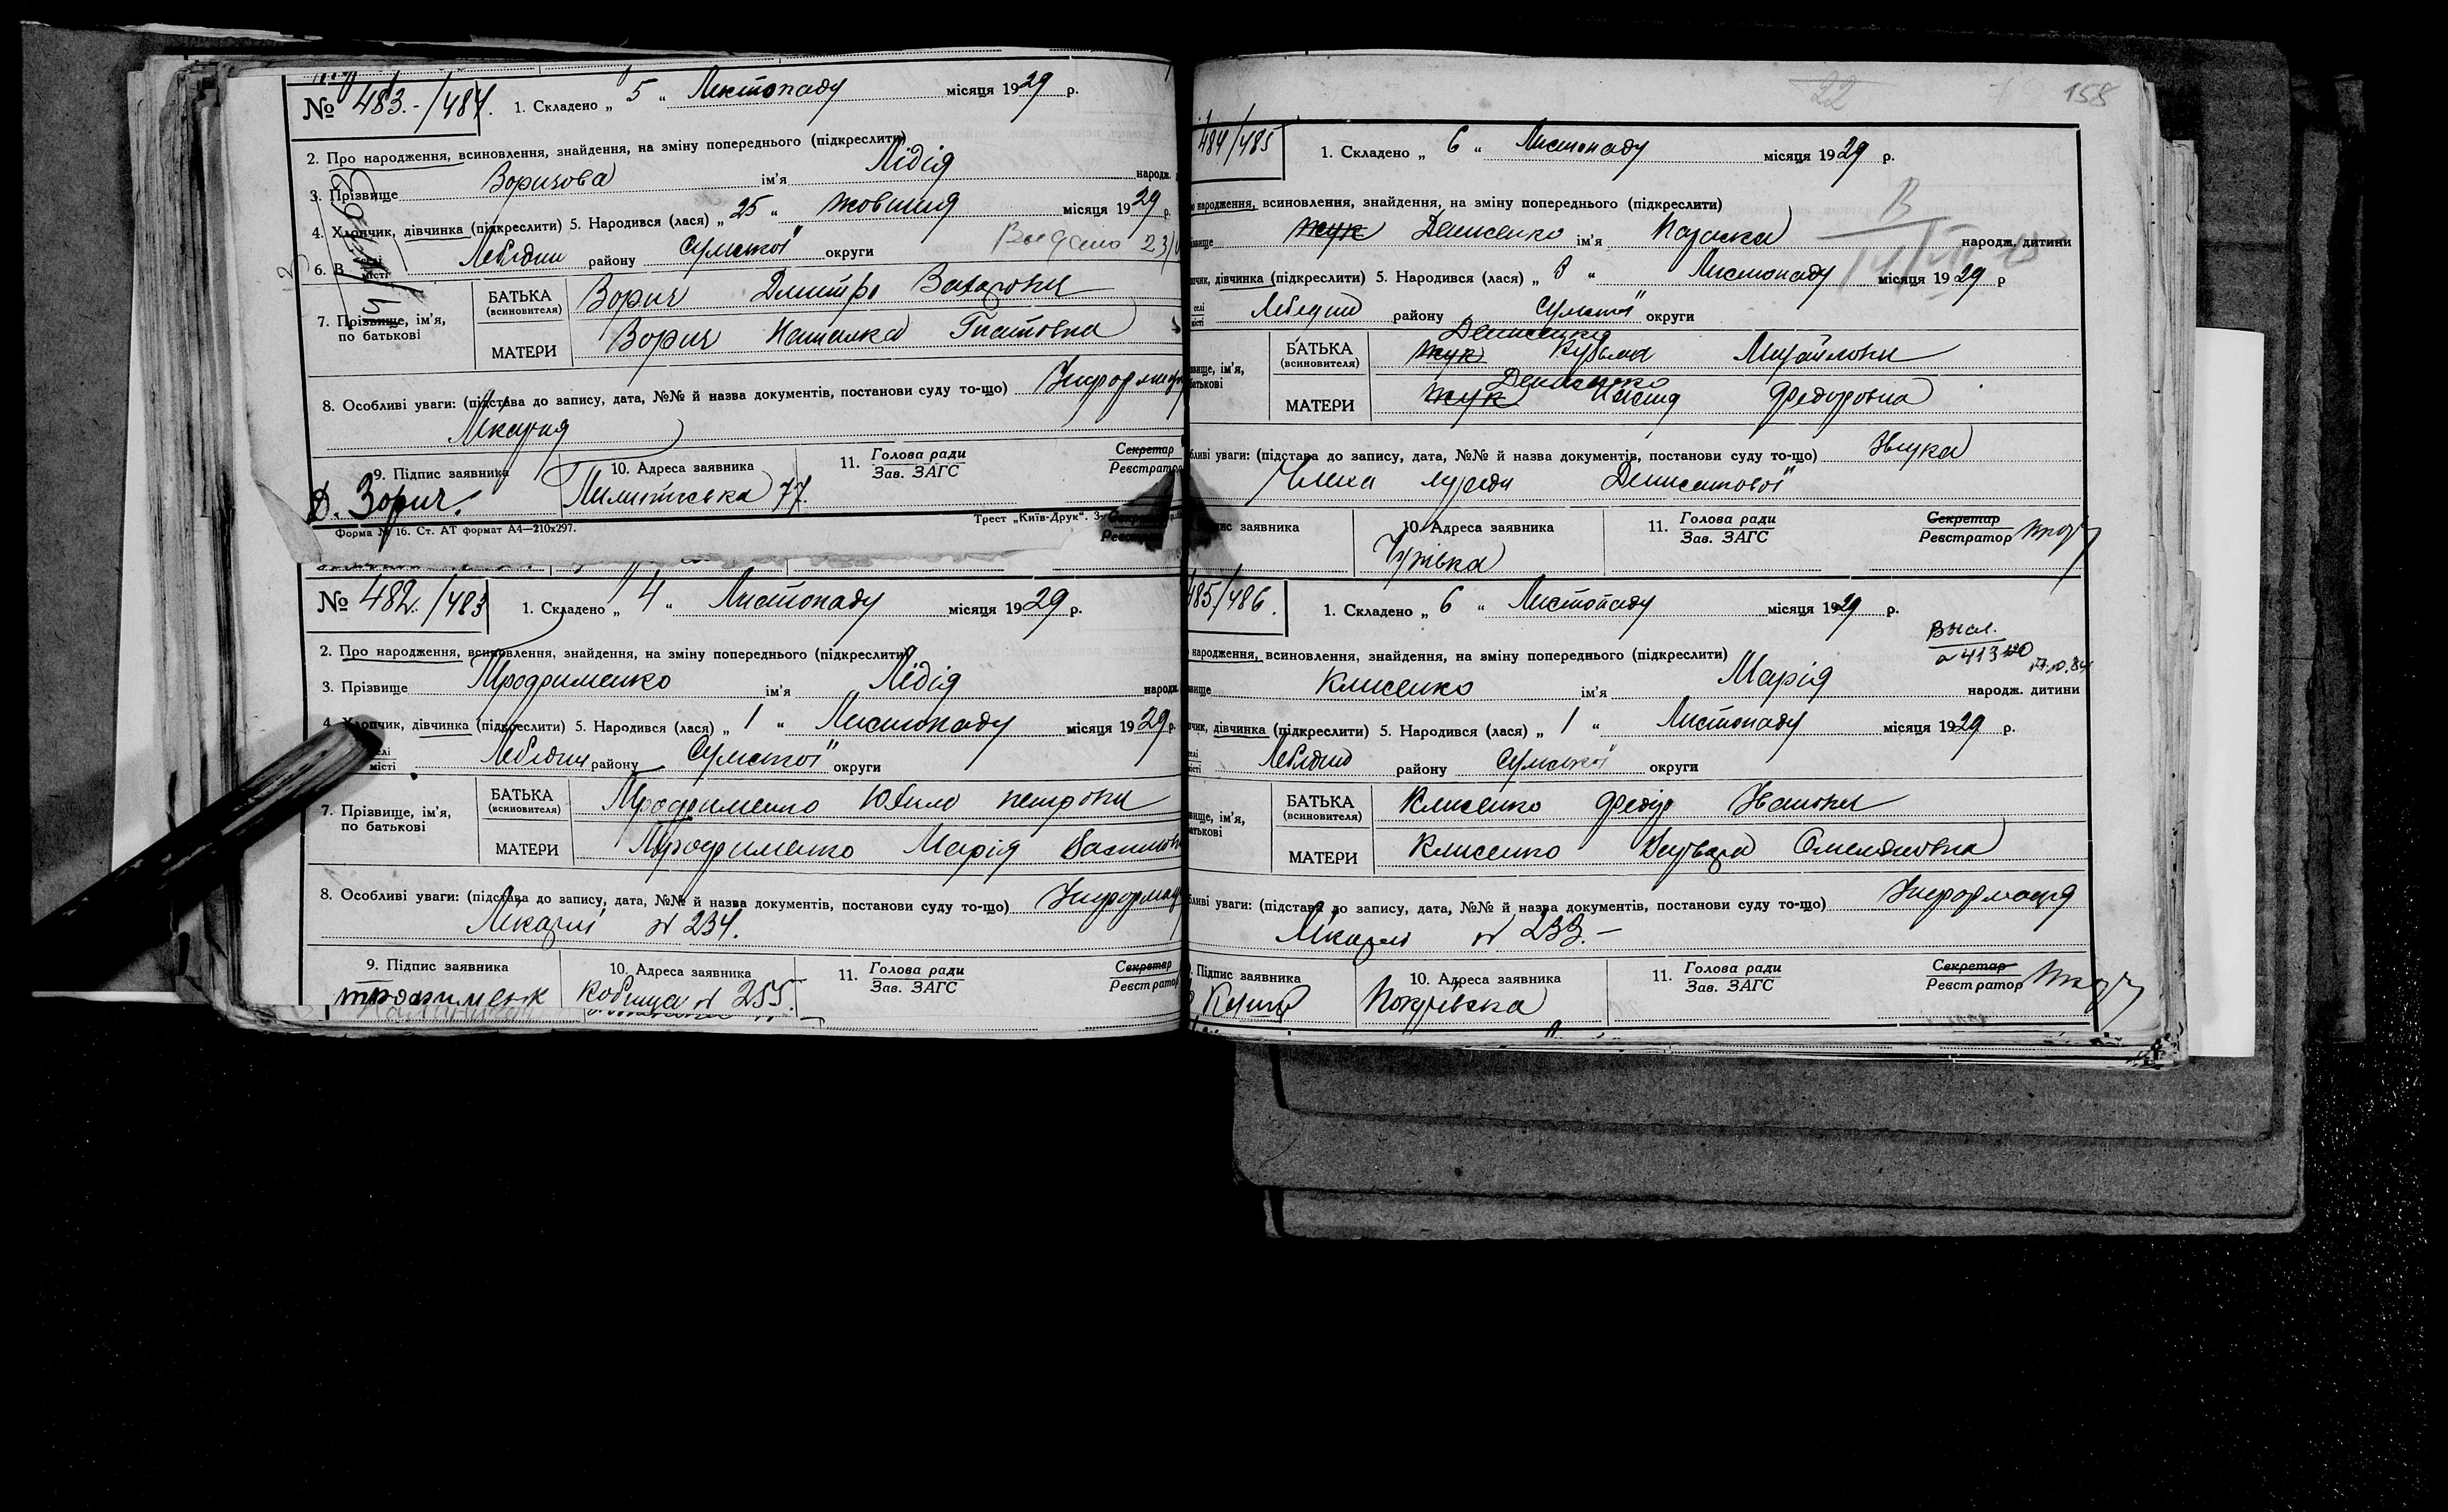 № 483.-/484. 1. Складено „ 5 “ Листопаду місяця 1929 р.
2. Про народження, всиновлення, знайдення, на зміну попереднього (підкреслити)
3. Прізвище Зоричова ім'я Лідія народж.
4. Хлопчик, дівчинка (підкреслити) 5. Народився (лася) „ 25 “ жовтня місяця 1929 р.
6. В селі місті Лебедин району Сумської округи
Выдано 23/
7. Прізвище, ім'я, по батькові
БАТЬКА (всиновителя) Зорич Дмитро Захарович
МАТЕРИ Зорич Наталка Гнатовна
8. Особливі уваги: (підстава до запису, дата, №№ й назва документів, постанови суду то-що)
Лікарня
9. Підпис заявника 10. Адреса заявника 11. Голова ради Зав. ЗАГС Секретар Реєстратор
Д. Зорич. 77.
Форма № 16. Ст. АТ формат А4—210х297. Трест „Київ-Друк“. З-
№ 482./483 1. Складено „ 4 “ Листопаду місяця 1929 р.
2. Про народження, всиновлення, знайдення, на зміну попереднього (підкреслити)
3. Прізвище Трофименко ім'я Лідія народж.
4. Хлопчик, дівчинка (підкреслити) 5. Народився (лася) „ 1 “ Листопаду місяця 1929 р.
селі місті Лебедин району Сумської округи
7. Прізвище, ім'я, по батькові
БАТЬКА (всиновителя) Трофименко Юхим петрович
МАТЕРИ Трофименко Марія
8. Особливі уваги: (підстава до запису, дата, №№ й назва документів, постанови суду то-що) Інформац
Лікарні № 234.
9. Підпис заявника 10. Адреса заявника 11. Голова ради Зав. ЗАГС Секретар Реєстратор
трофименк № 255.
22 158
484/485 1. Складено „ 6 “ Листопаду місяця 1929 р.
народження, всиновлення, знайдення, на зміну попереднього (підкреслити)
Жук Денисенко ім'я Параска народж. дитини
дівчинка (підкреслити) 5. Народився (лася) „ 3 “ Листопаду місяця 1929 р
Лебедин району Сумської округи
Денисенко
БАТЬКА (всиновителя) Жук Кузьма Михайлович
Денисенко
МАТЕРИ Жук Федоровна
уваги: (підстава до запису, дата, №№ й назва документів, постанови суду то-що)
Члена
заявника 10. Адреса заявника 11. Голова ради Зав. ЗАГС Секретар Реєстратор
485/486. 1. Складено „ 6 “ Листопаду місяця 1929 р.
Высл.
народження, всиновлення, знайдення, на зміну попереднього (підкреслити)
Клисенко ім'я Марія народж. дитини
дівчинка (підкреслити) 5. Народився (лася) „ 1 “ Листопаду місяця 1929 р.
Лебедин району Сумської округи
БАТЬКА (всиновителя) Клисенко Федір Іванович
МАТЕРИ Клисенко Омеляновна
уваги: (підстава до запису, дата, №№ й назва документів, постанови суду то-що) Інформація
Лікарні № 233.—
Підпис заявника 10. Адреса заявника 11. Голова ради Зав. ЗАГС Секретар Реєстратор